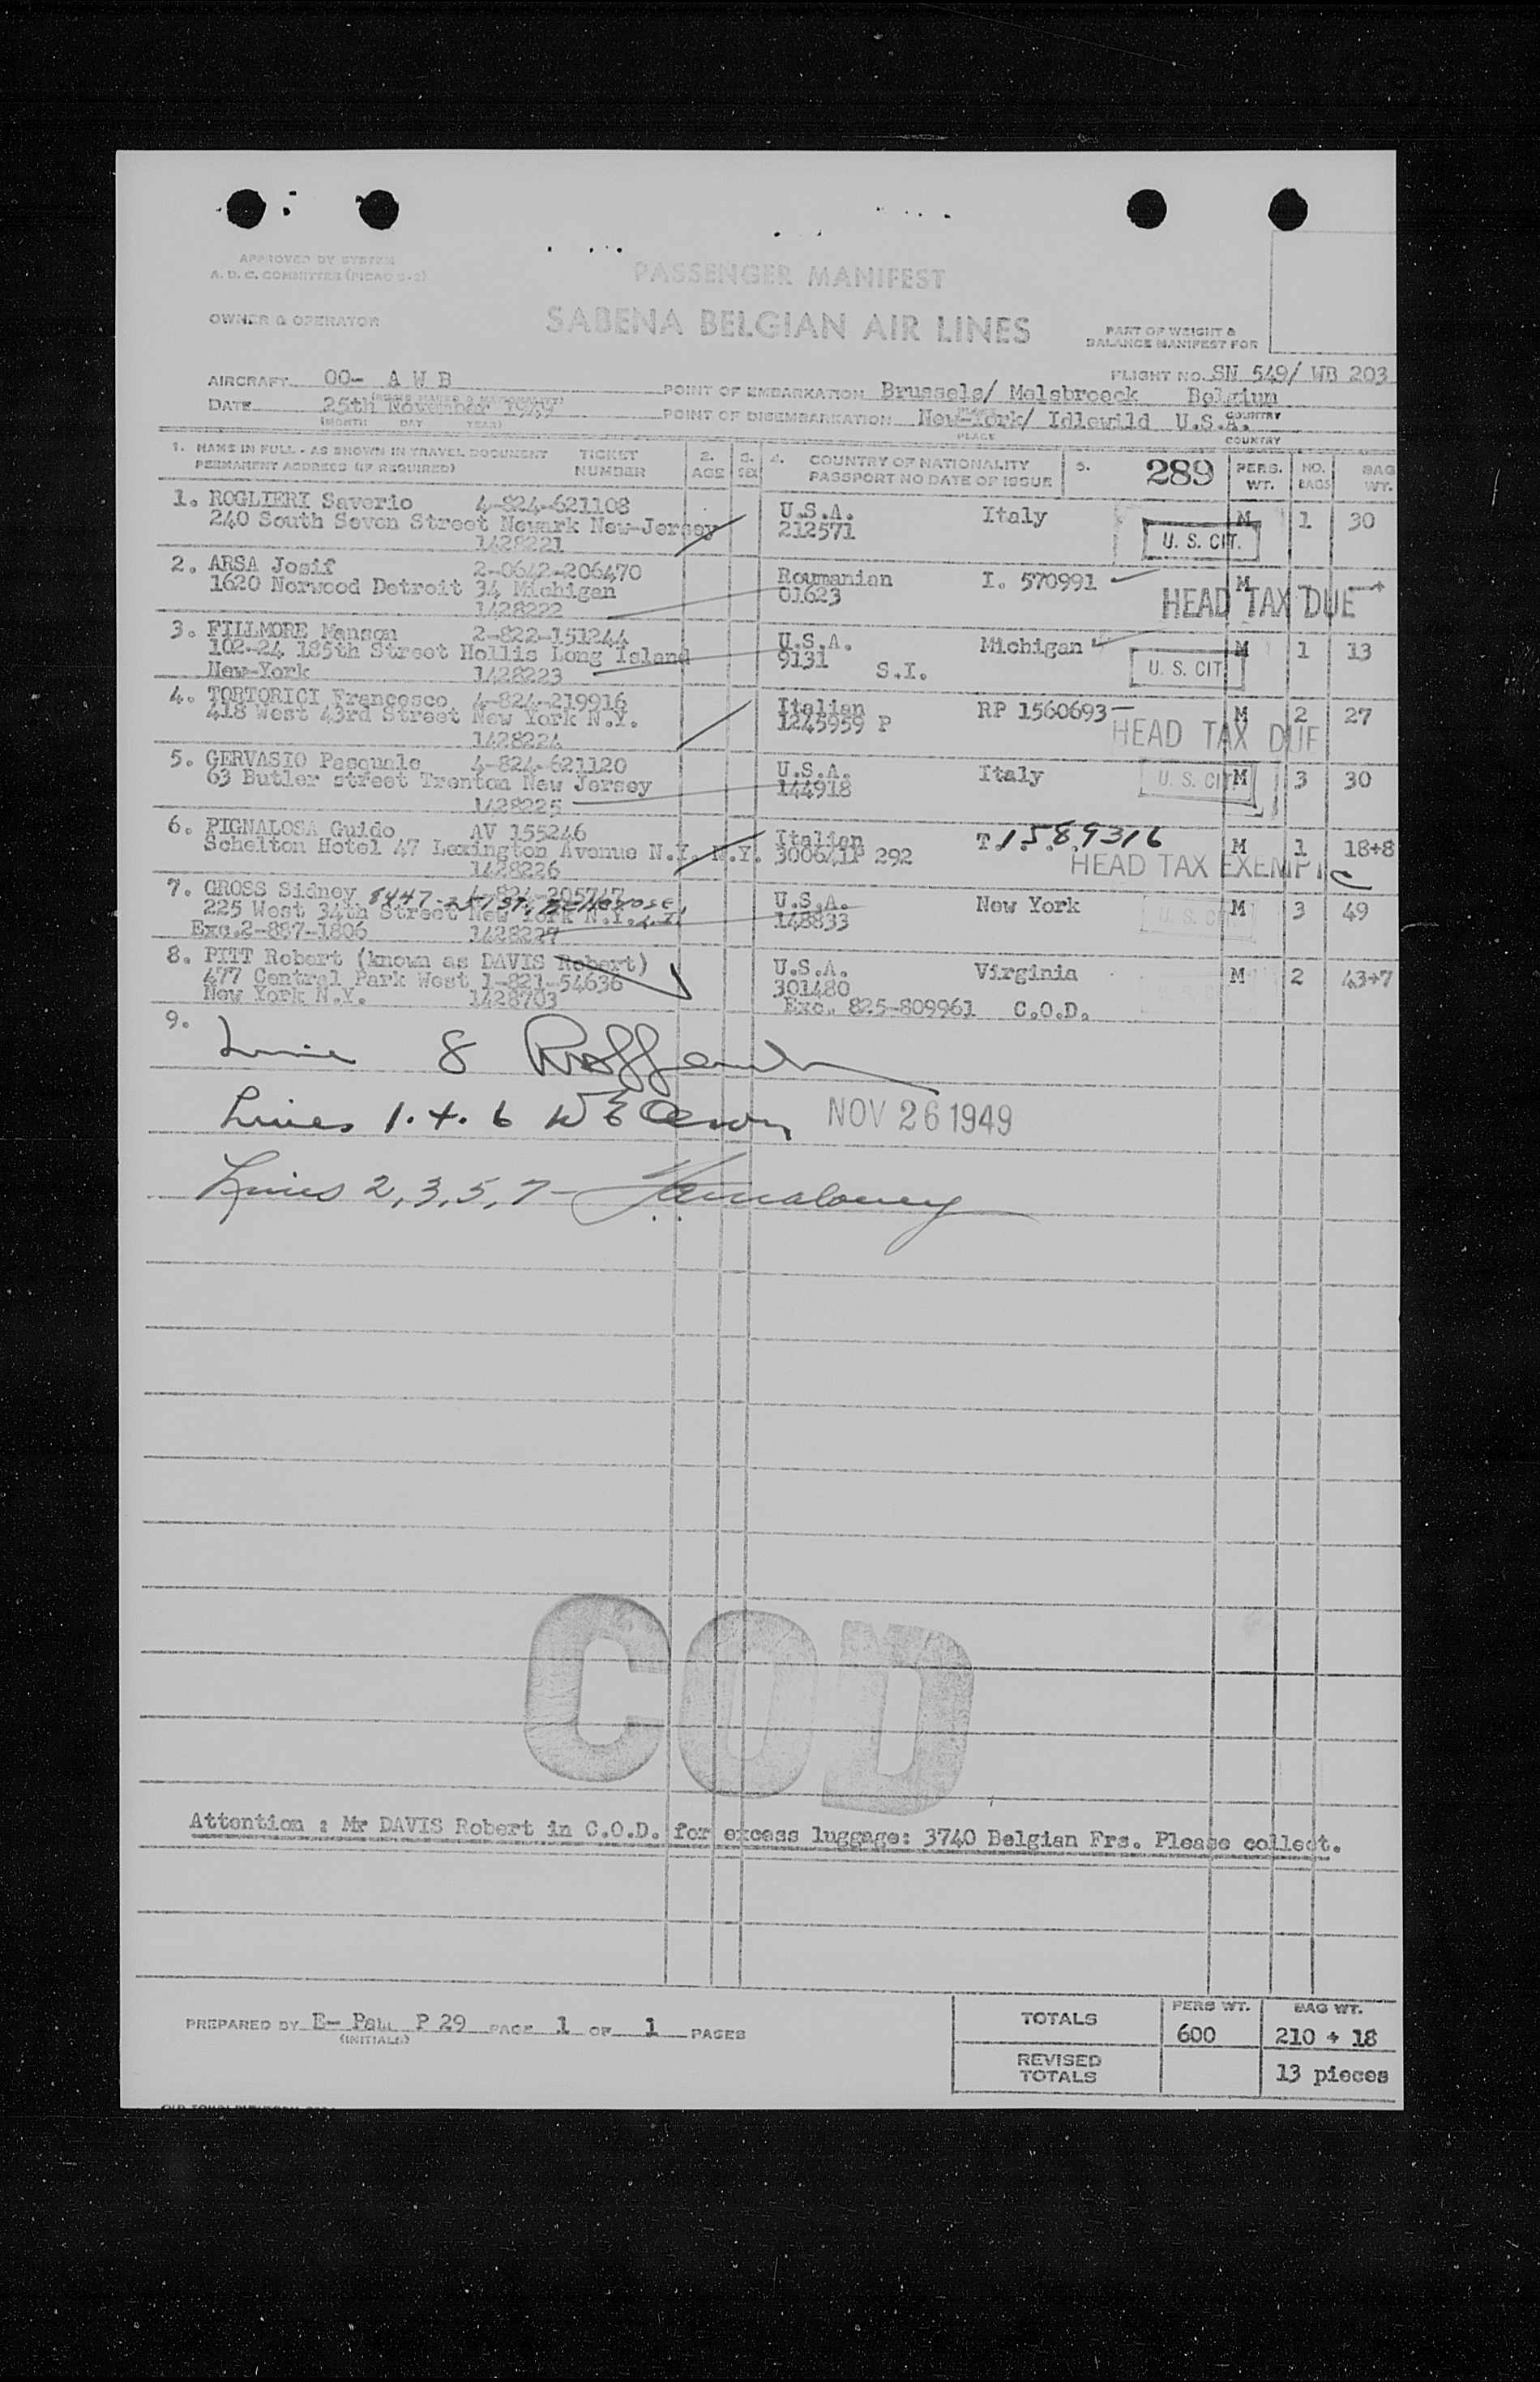 APPROVED BY SYSTEM
A. D. C. COMMITTEE (PICAO 9-2)
PASSENGER MANIFEST
OWNER & OPERATOR
SABENA BELGIAN AIR LINES
PART OF WEIGHT &
BALANCE MANIFEST FOR
FLIGHT NO. SN 549/ WB 203
AIRCRAFT OO- A W B
POINT OF EMBARKATION Brussels/ Melsbroeck Belgium
PLACE COUNTRY
DATE 25th November 1949
(MONTH DAY YEAR)
POINT OF DISEMBARKATION New-York/ Idlewild U.S.A.
PLACE COUNTRY
1. NAME IN FULL - AS SHOWN IN TRAVEL DOCUMENT TICKET 2. 3. 4. COUNTRY OF NATIONALITY 5. 289 PERS. NO. BAG
PERMANENT ADDRESS (IF REQUIRED) NUMBER AGE SEX PASSPORT NO DATE OF ISSUE WT. BAGS WT.
1. ROGLIERI Saverio 4-824-621108 U.S.A. Italy M 1 30
240 South Seven Street Newark New-Jersey 212571 U. S. CIT.
1428221
2. ARSA Josif 2-0642-206470 Roumanian I. 570991 M
1620 Norwood Detroit 34 Michigan 01623 HEAD TAX DUE
1428222
3. FILLMORE Manson 2-822-151244 U.S.A. Michigan M 1 13
102-24 185th Street Hollis Long Island 9131 S.I. U. S. CIT
New-York 1428223
4. TORTORICI Francesco 4-824-219916 Italian RP 1560693 M 2 27
418 West 43rd Street New York N.Y. 1245959 P HEAD TAX DUE
1428224
5. GERVASIO Pasquale 4-824-621120 U.S.A. Italy M 3 30
63 Butler street Trenton New Jersey 144918 U. S. CIT
1428225
6. PIGNALOSA Guido AV 155246 Italian T.1589316 M 1 18+8
Schelton Hotel 47 Lexington Avenue N.Y. N.Y. 300641P 292 HEAD TAX EXEMPT
1428226
7. GROSS Sidney 4-824-205747 U.S.A. New York M 3 49
225 West 34th Street New York N.Y. 148833 U. S. CIT
Exc.2-887-1806 1428227
8. PITT Robert (known as DAVIS Robert) U.S.A. Virginia M 2 43+7
477 Central Park West 1-821-54636 301480
New York N.Y. 1428703 Exc. 825-809961 C.O.D.
9.
Line 8
Lines 1. 4. 6 NOV 26 1949
Lines 2, 3, 5, 7
COD
Attention : Mr DAVIS Robert in C.O.D. for excess luggage: 3740 Belgian Frs. Please collect.
PREPARED BY E- Pau P 29 PAGE 1 OF 1 PAGES
(INITIALS)
PERS WT. BAG WT.
TOTALS 600 210 + 18
REVISED
TOTALS 13 pieces